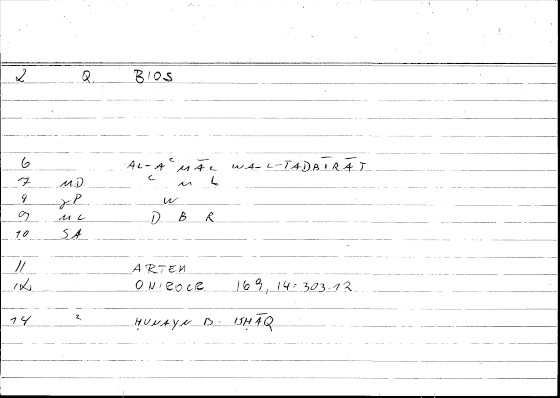 2 Q BIOS
6 AL-AʿMĀL WA-L-TADBĪRĀT
7 MD ʿ M L
8 γP W
9 MC D B R
10 SA
11 ARTEM
12 ONIROCR 169,14=303.12
14 2 ḤUNAYN B. ISḤĀQ